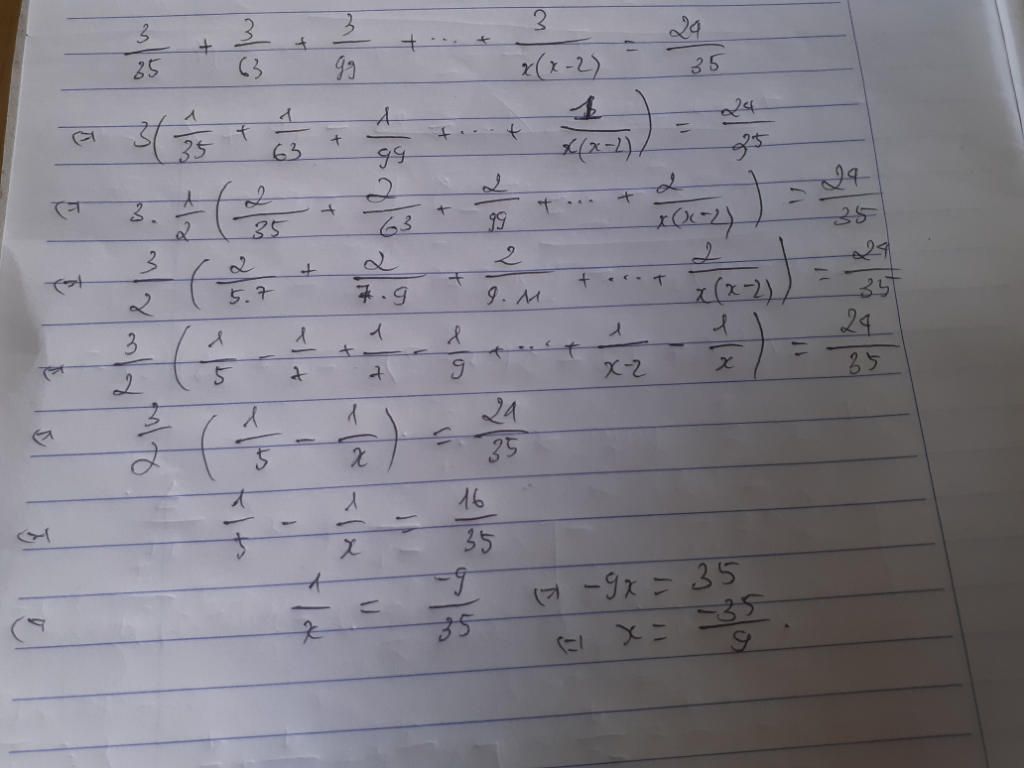 3/35 + 3/63 + 3/99 + ... + 3/x(x-2) = 24/35
⇔ 3(1/35 + 1/63 + 1/99 + ... + 1/x(x-2)) = 24/35
⇔ 3. 1/2 (2/35 + 2/63 + 2/99 + ... + 2/x(x-2)) = 24/35
⇔ 3/2 (2/5.7 + 2/7.9 + 2/9.11 + ... + 2/x(x-2)) = 24/35
⇔ 3/2 (1/5 - 1/7 + 1/7 - 1/9 + ... + 1/x-2 - 1/x) = 24/35
⇔ 3/2 (1/5 - 1/x) = 24/35
⇔ 1/5 - 1/x = 16/35
⇔ 1/x = -9/35 ⇔ -9x = 35
⇔ x = -35/9.